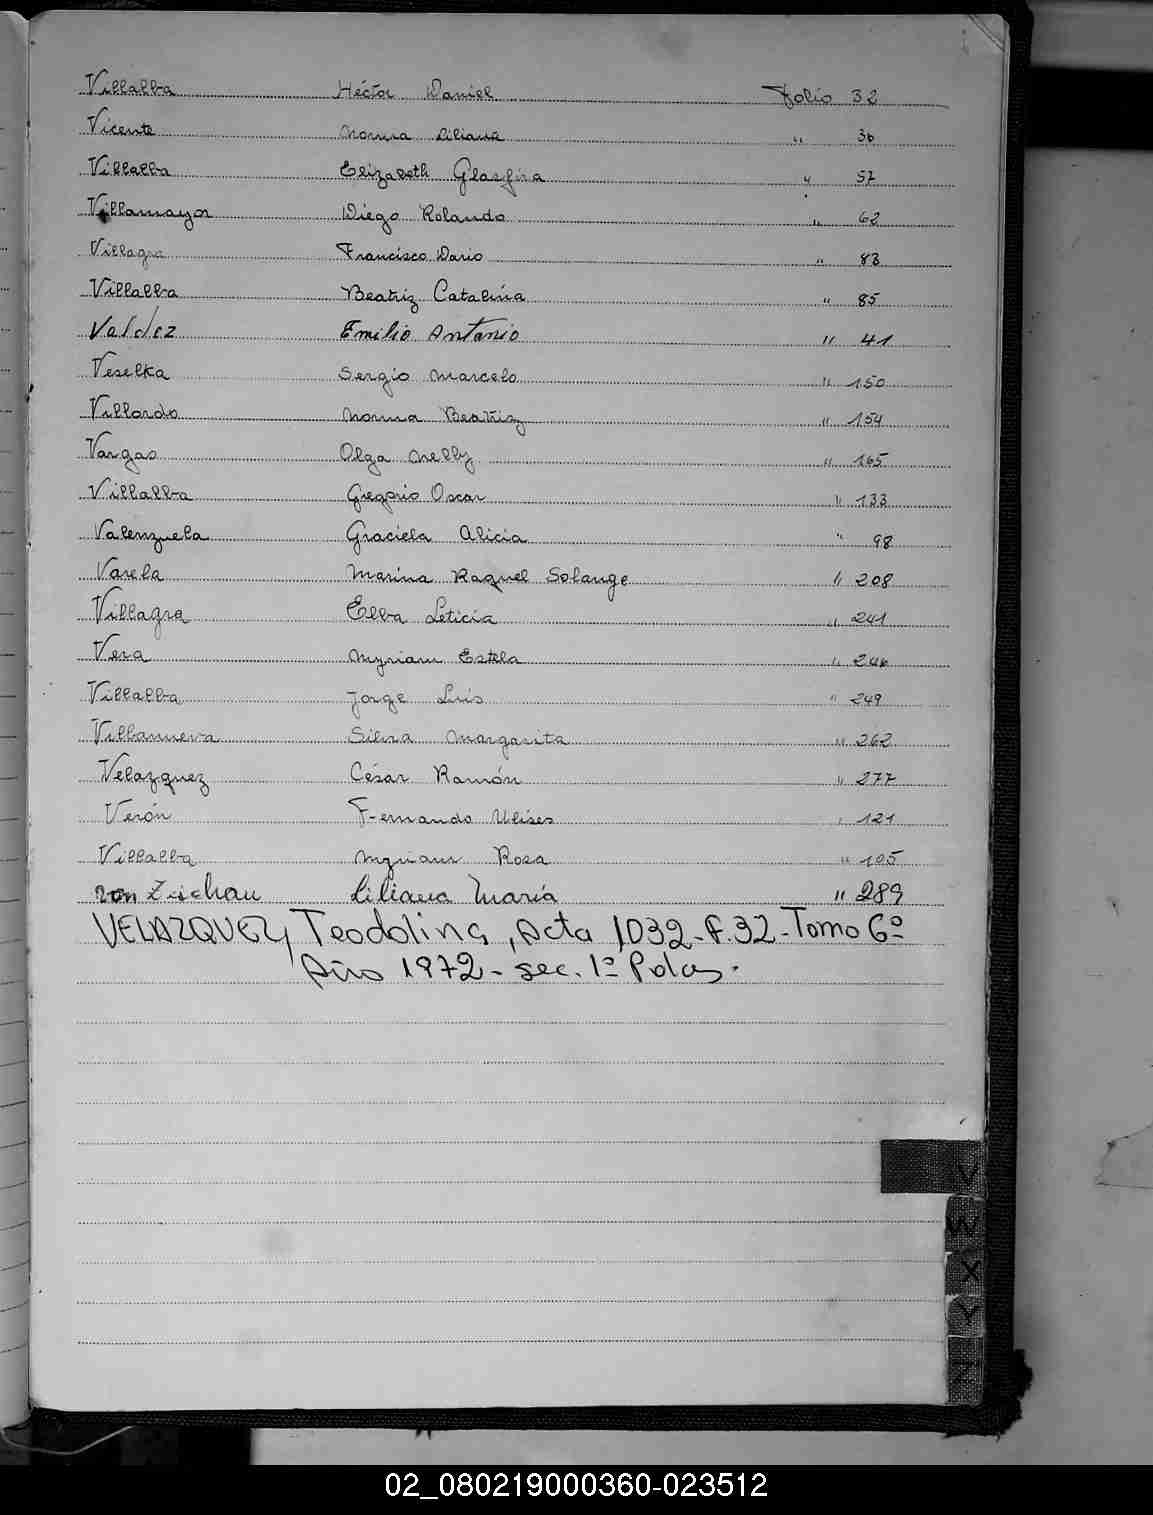 Villalba Héctor Daniel Folio 32
Vicente Norma Liliana " 36
Villalba Elizabeth Glasfira " 57
Villamayor Diego Rolando " 62
Villagra Francisco Dario " 83
Villalba Beatriz Catalina " 85
Valdez Emilio Antonio " 41
Veselka Sergio Marcelo " 150
Villordo Norma Beatriz " 154
Vargas Olga Nelly " 165
Villalba Gregorio Oscar " 133
Valenzuela Graciela Alicia " 98
Varela Marina Raquel Solange " 208
Villagra Elba Leticia " 241
Vera Myriam Estela " 246
Villalba Jorge Luis " 249
Villanueva Silvia Margarita " 262
Velazquez César Ramón " 277
Verón Fernando Ulises " 121
Villalba Myriam Rosa " 105
von Zischau Liliana María " 289
VELAZQUEZ, Teodolina, Acta 1032-f.32-Tomo 6º
Año 1972- sec. 1º Pdas.
V
W
X
Y
Z
02_080219000360-023512